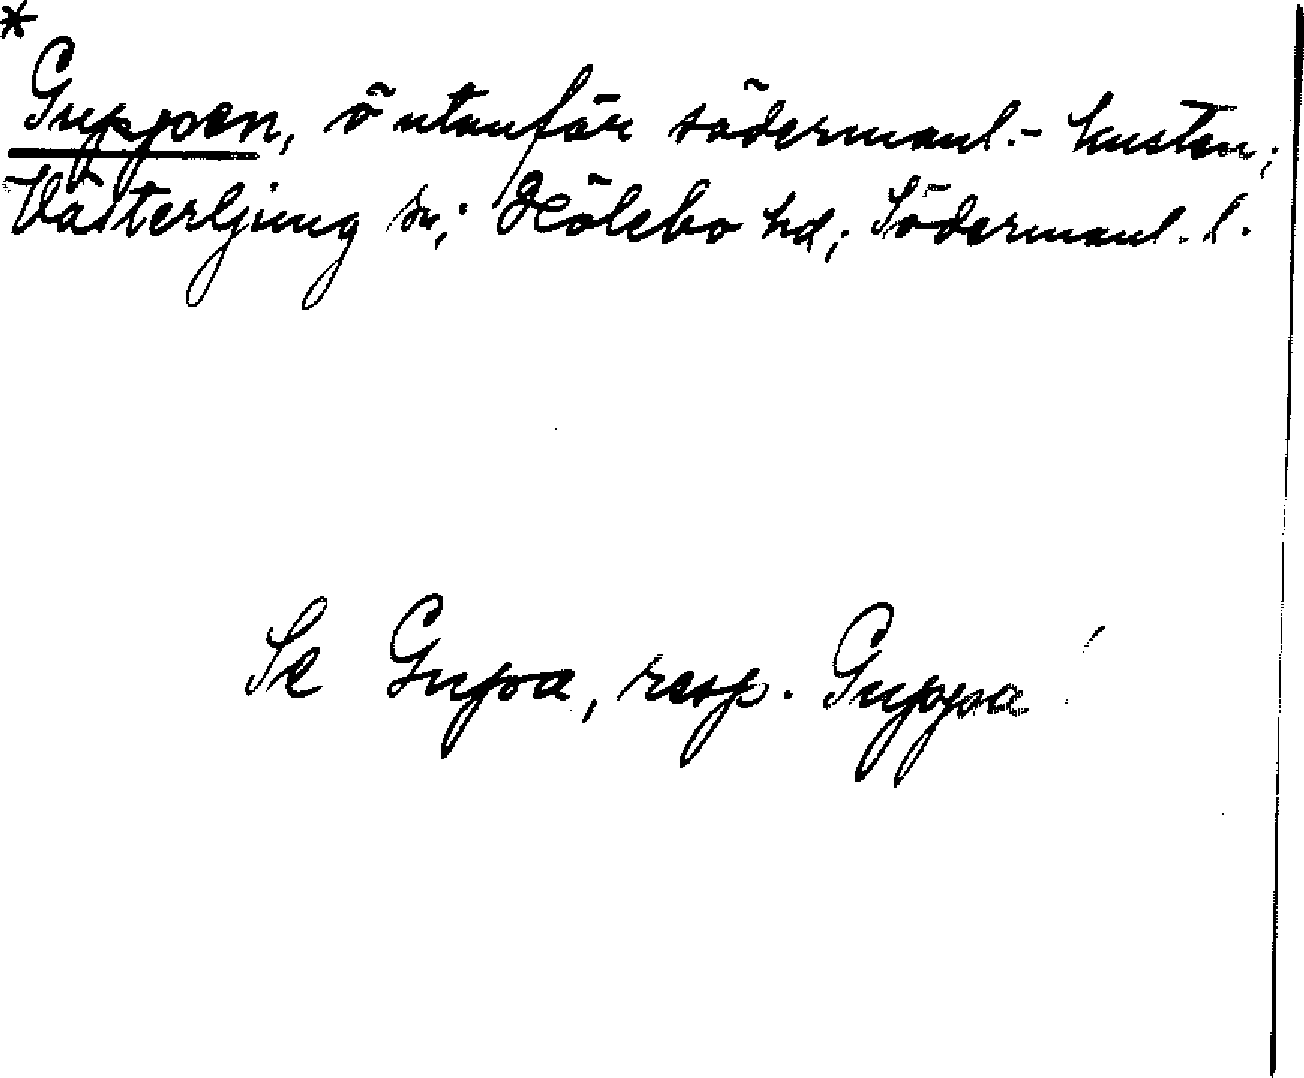 *
Guppen, ö utanför södermanl.- kusten;
Västerljung sn; Hölebo hd; Södermanl. l.
Se Gupa, resp. Guppa!